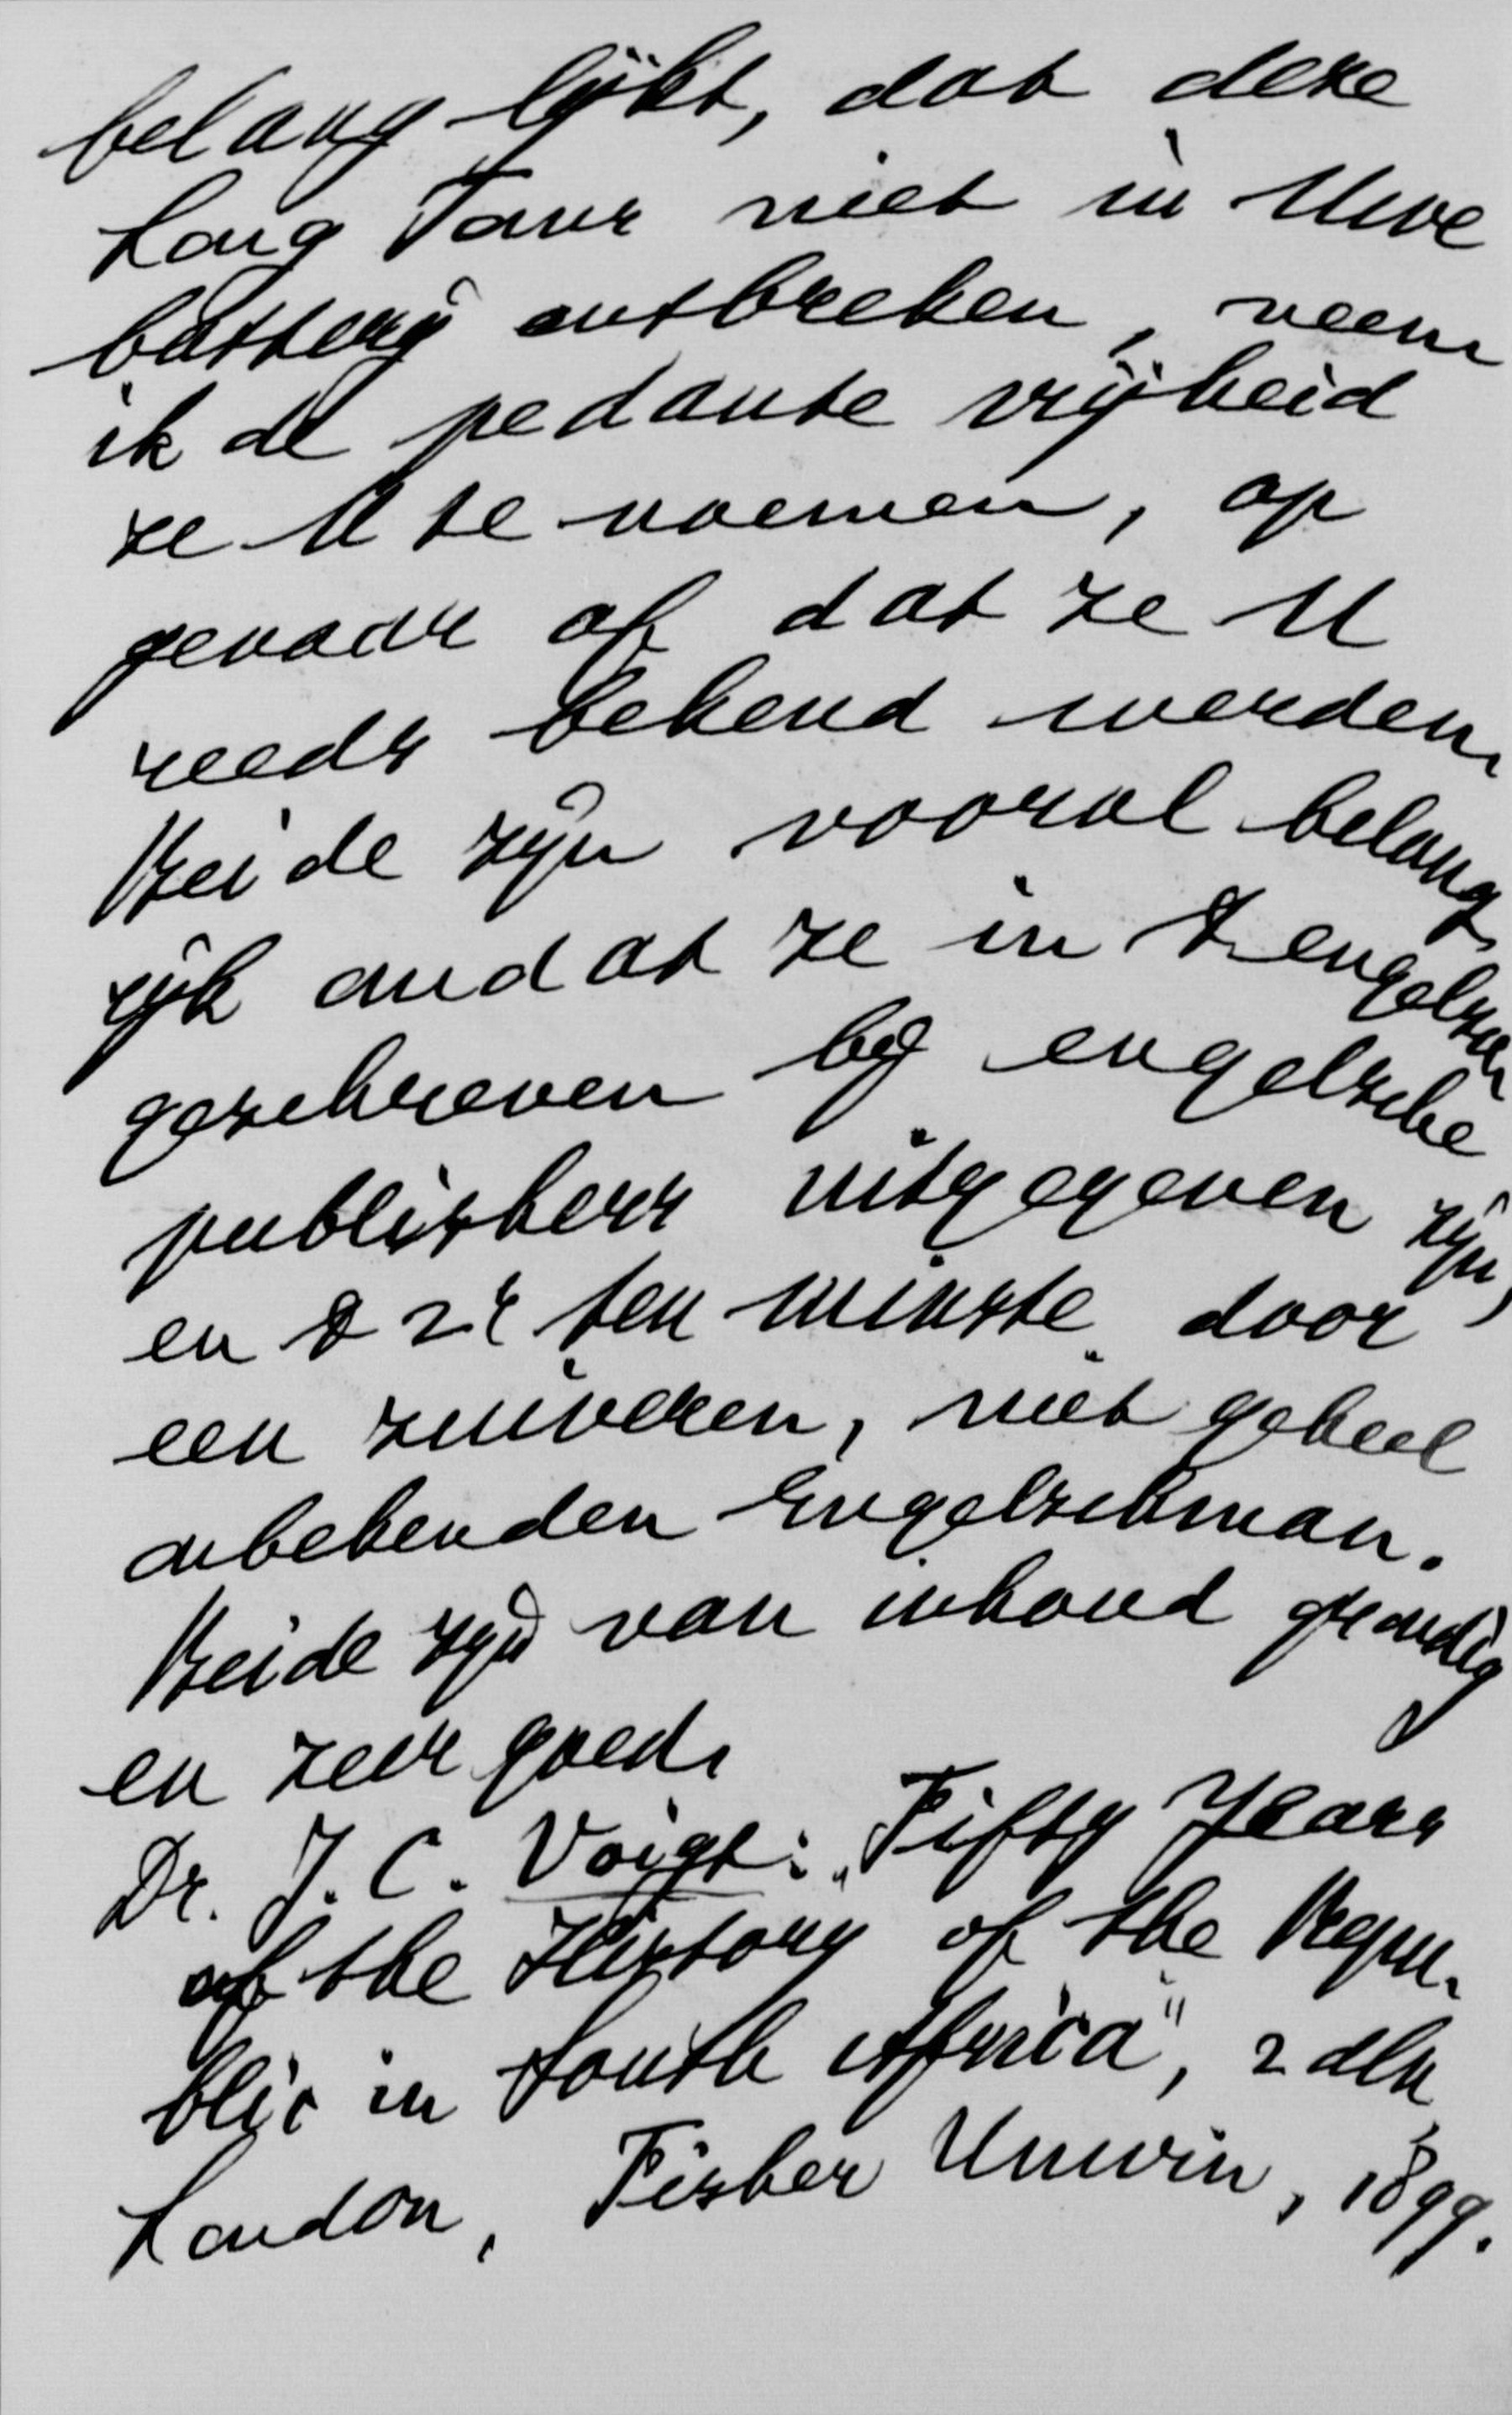 belang lijkt, dat deze
Long Toms niet in Uwe
batterij ontbreken, neem
ik de pedante vrijheid
ze U te noemen, op
gevaar af dat ze U
reeds bekend werden.
Beide zijn vooral belang-
rijk omdat ze in 't engelsch
geschreven bij engelsche
publishers uitgegeven zijn,
en 't 2e ten minste door
een zuiveren, niet geheel
onbekenden Engelschman.
Beide zijn van inhoud grondig
en zeer goed.
Dr. J. C. Voigt: „Fifty Years
of the History of the Repu-
blic in South Africa", 2 dln
London, Fisher Unwin, 1899.